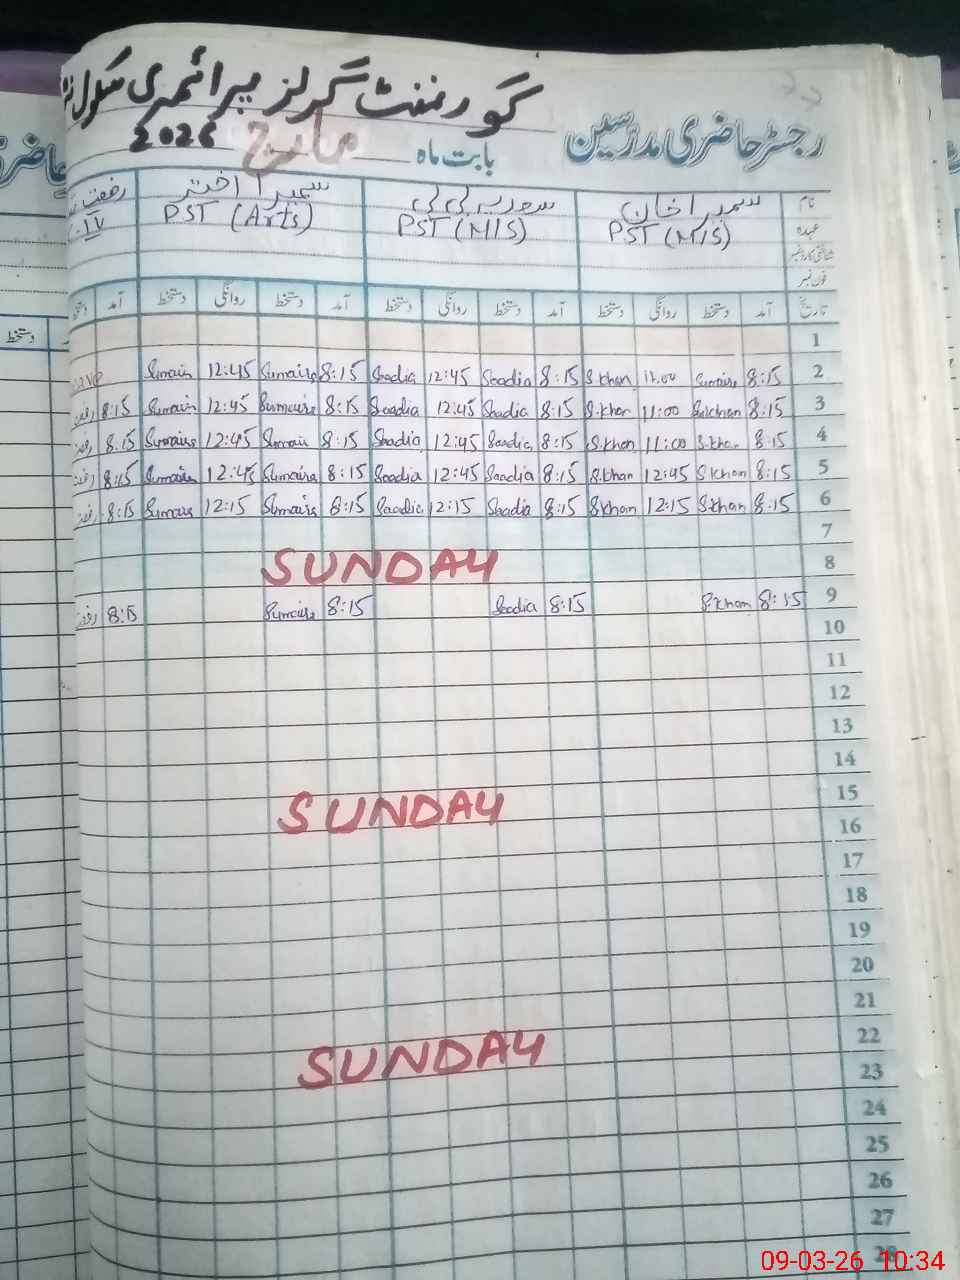 گورنمنٹ گرلز پرائمری سکول
رجسٹر حاضری مدرسین بابت ماہ مارچ 2026
نام سمیرا خان سعدیہ بی بی سمیرا اختر رفعت
عہدہ PST (M/S) PST (M/S) PST (Arts) IV
شناختی کارڈ نمبر
فون نمبر
تاریخ آمد دستخط روانگی دستخط آمد دستخط روانگی دستخط آمد دستخط روانگی دستخط آمد دستخط
1
2 8:15 Sumaira 11:00 S.khan 8:15 Saadia 12:45 Saadia 8:15 Sumaira 12:45 Sumaira
3 8:15 S.khan 11:00 S.khan 8:15 Saadia 12:45 Saadia 8:15 Sumaira 12:45 Sumaira 8:15 رفعت
4 8:15 S.khan 11:00 S.khan 8:15 Saadia 12:45 Saadia 8:15 Sumaira 12:45 Sumaira 8:15 رفعت
5 8:15 S.khan 12:45 S.khan 8:15 Saadia 12:45 Saadia 8:15 Sumaira 12:45 Sumaira 8:15 رفعت
6 8:15 S.khan 12:15 S.khan 8:15 Saadia 12:15 Saadia 8:15 Sumaira 12:15 Sumaira 8:15 رفعت
7
8 SUNDAY
9 8:15 S.khan 8:15 Saadia 8:15 Sumaira 8:15 رفعت
10
11
12
13
14
15 SUNDAY
16
17
18
19
20
21
22 SUNDAY
23
24
25
26
27
28
09-03-26 10:34